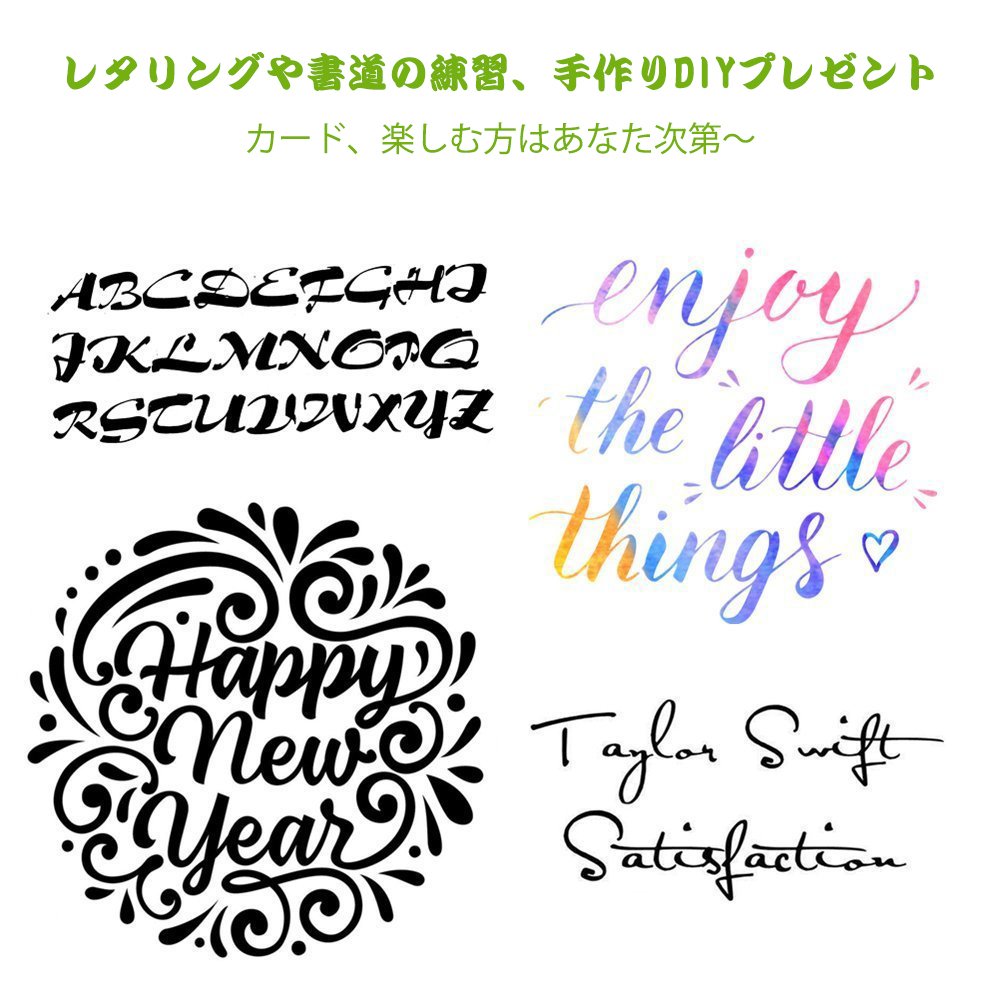 レタリングや書道の練習、手作りDIYプレゼント
カード、楽しむ方はあなた次第～
ABCDEFGHI
JKLMNOPQ
RSTUVWXYZ
enjoy
the little
things
Happy
New
Year
Taylor Swift
Satisfaction